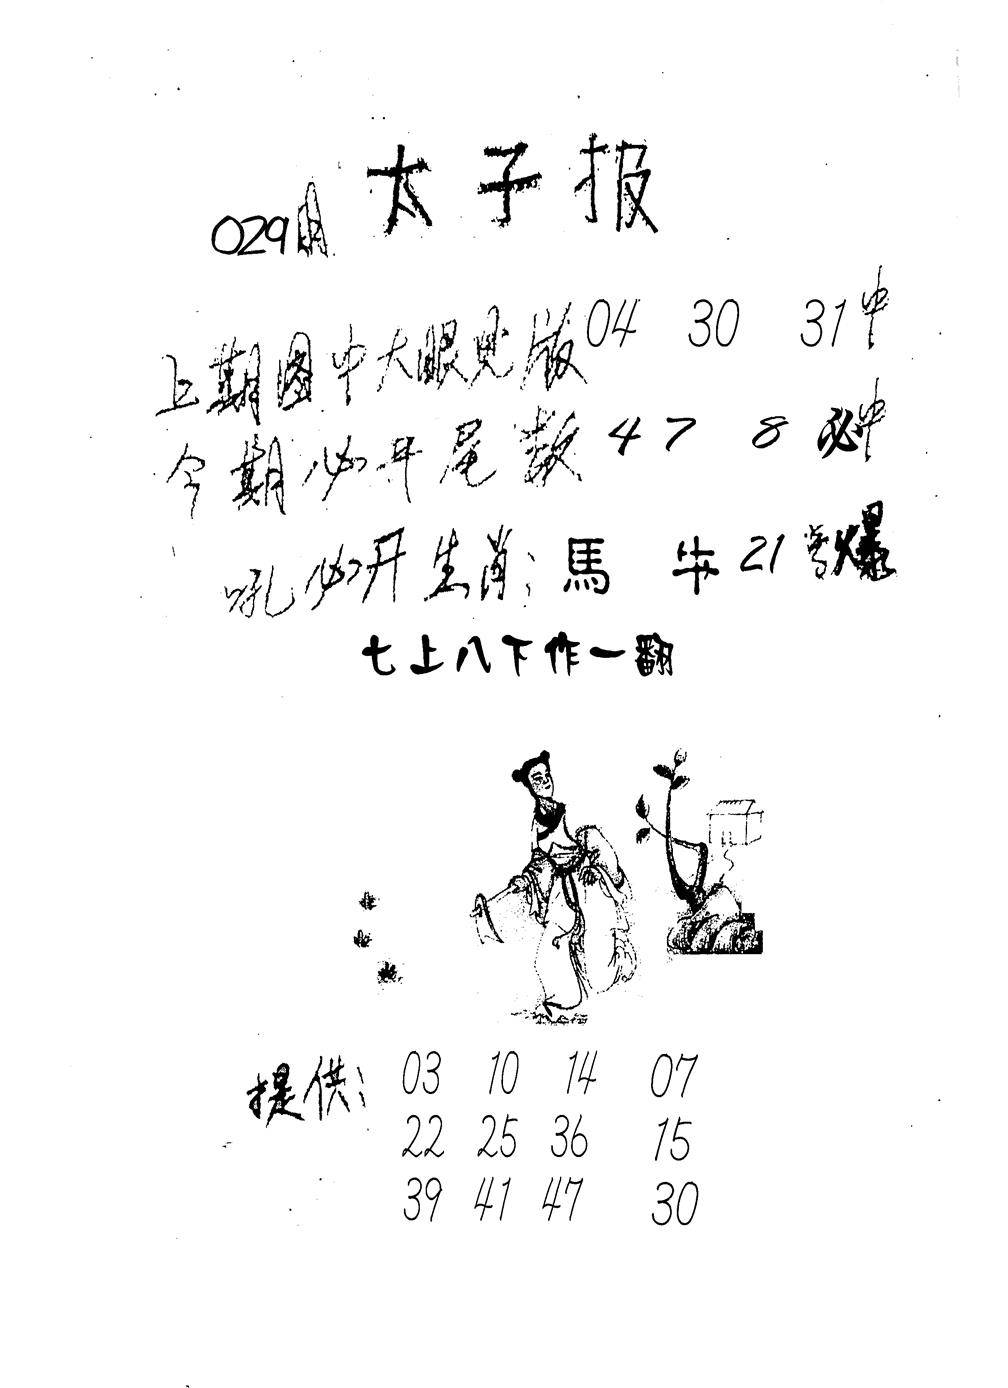 太子报
029期
上期图中大眼见版 04 30 31 中
今期必开尾数 4 7 8 必中
吼必开生肖: 馬 牛 21 爆
七上八下作一翻
提供: 03 10 14 07
22 25 36 15
39 41 47 30